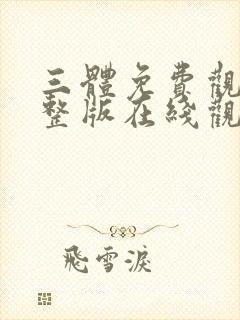 三體免費觀
整版在綫觀
飛雪淚